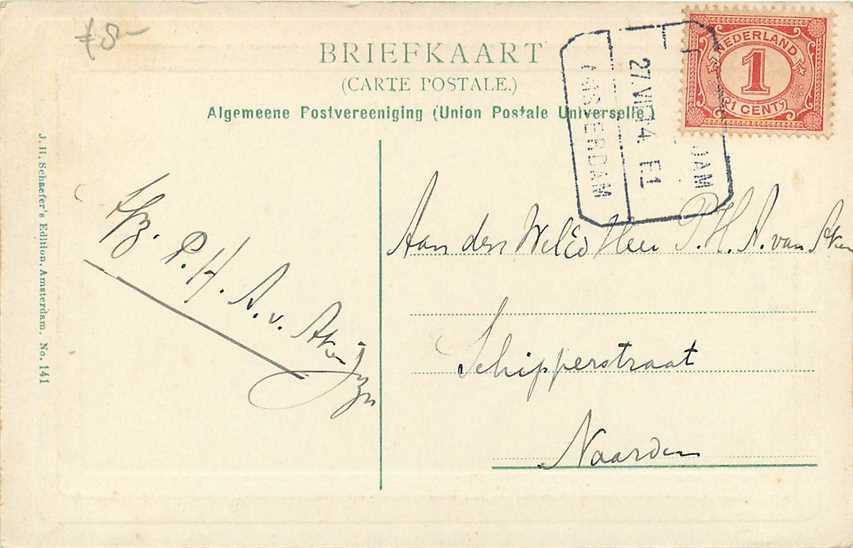 ƒ8-
BRIEFKAART
(CARTE POSTALE.)
Algemeene Postvereeniging (Union Postale Universelle)
NEDERLAND
1
(1 CENT)
AMSTERDAM
27.VII.14. F.1
DAM
J. H. Schaefer's Edition, Amsterdam, No. 141
P. H. A. v. Aken
Aan den WelEd Heer P. H. A. van Aken
Schipperstraat
Naarden